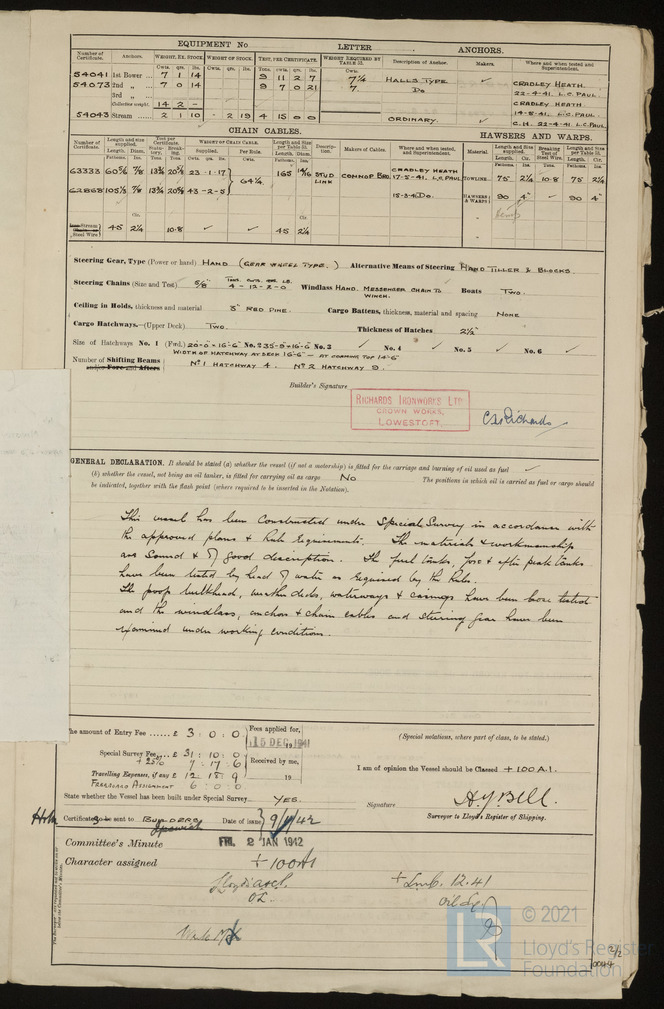 EQUIPMENT No LETTER ANCHORS.
Number of Certificate. Anchors. WEIGHT, EX. STOCK. WEIGHT OF STOCK. TEST, PER CERTIFICATE. WEIGHT REQUIRED BY TABLE 31. Description of Anchor. Makers. Where and when tested and Superintendent.
54041 1st Bower 7 1 14 9 11 2 7 7¼ HALLS TYPE ✓ CRADLEY HEATH
54073 2nd „ 7 0 14 9 7 0 21 7 Do 22-4-41. L.C. PAUL.
3rd „ CRADLEY HEATH
Collective weight. 14 2 – 14-5-41. L.C. PAUL
54043 Stream 2 1 10 - 2 19 4 15 0 0 ORDINARY. ✓ C.H. 22-4-41. L.C. PAUL
CHAIN CABLES. HAWSERS AND WARPS.
Number of Certificate. Length and size supplied. Test per Certificate. WEIGHT OF CHAIN CABLE. Length and Size per Table 31. Description. Makers of Cables. Where and when tested, and Superintendent. Material. Length and Size supplied. Breaking Test of Steel Wire. Length and Size per Table 31.
63333 60⅚ 7/8 13¾ 20⅝ 23-1-17 64¼ 165 14/16 STUD LINK CONNOP BRO. CRADLEY HEATH 17-5-41. L.C. PAUL TOWLINE 75 2¼ 10.8 75 2¼
62868 105½ 7/8 13¾ 20⅝ 43-2-5 15-3-41 Do. HAWSERS & WARPS 90 4" ✓ 90 4"
Hemp
Stream Steel Wire 45 2¼ 10.8 ✓ ✓ 45 2¼
Steering Gear, Type (Power or hand) HAND (GEAR WHEEL TYPE.) Alternative Means of Steering HAND TILLER & BLOCKS
Steering Chains (Size and Test) 5/8" TONS. CWTS. QRS. LB. 4-12-2-0 Windlass HAND. MESSENGER CHAIN TO WINCH. Boats TWO.
Ceiling in Holds, thickness and material 3" RED PINE. Cargo Battens, thickness, material and spacing NONE
Cargo Hatchways.—(Upper Deck) TWO. Thickness of Hatches 2½"
Size of Hatchways No. 1 (Fwd.) 20-0 × 16-6 No. 2 35-0 × 16-6 No. 3 ✓ No. 4 ✓ No. 5 ✓ No. 6 ✓
WIDTH OF HATCHWAY AT DECK 16-6 — AT COAMING TOP 14-6
Number of Shifting Beams and/or Fore and Afters No 1 HATCHWAY 4. No 2 HATCHWAY 9.
Builder's Signature
RICHARDS IRONWORKS LTD
CROWN WORKS,
LOWESTOFT.
GENERAL DECLARATION. It should be stated (a) whether the vessel (if not a motorship) is fitted for the carriage and burning of oil used as fuel ✓
(b) whether the vessel, not being an oil tanker, is fitted for carrying oil as cargo No The positions in which oil is carried as fuel or cargo should
be indicated, together with the flash point (where required to be inserted in the Notation).
This vessel has been Constructed under Special Survey in accordance with
the approved plans & Rule Requirements. The materials & workmanship
are Sound & of good description. The fuel tanks, fore & after peak tanks
have been tested by head of water as required by the Rules.
The poop bulkhead, weather decks, waterways & casings have been hose tested
and the windlass, anchors & chain cables and steering gear have been
examined under working conditions.
The amount of Entry Fee £ 3 : 0 : 0 Fees applied for, 15 DEC 1941 (Special notations, where part of class, to be stated.)
Special Survey Fee £ 31 : 10 : 0
+ 25% 7 : 17 : 6 Received by me, I am of opinion the Vessel should be Classed + 100 A.1.
Travelling Expenses, if any £ 12 : 18 : 9 19
FREEBOARD ASSIGNMENT 6 : 0 : 0
State whether the Vessel has been built under Special Survey YES. Signature H. J. Bell.
Surveyor to Lloyd's Register of Shipping.
Certificate to be sent to BUILDERS Ipswich Date of issue 9/1/42
Committee's Minute FRI. 2 JAN 1942
Character assigned +100A1
Lloyd's A & C.P. + LMC. 12.41
OL. Oil Eng
© 2021
Lloyd's Register
Foundation